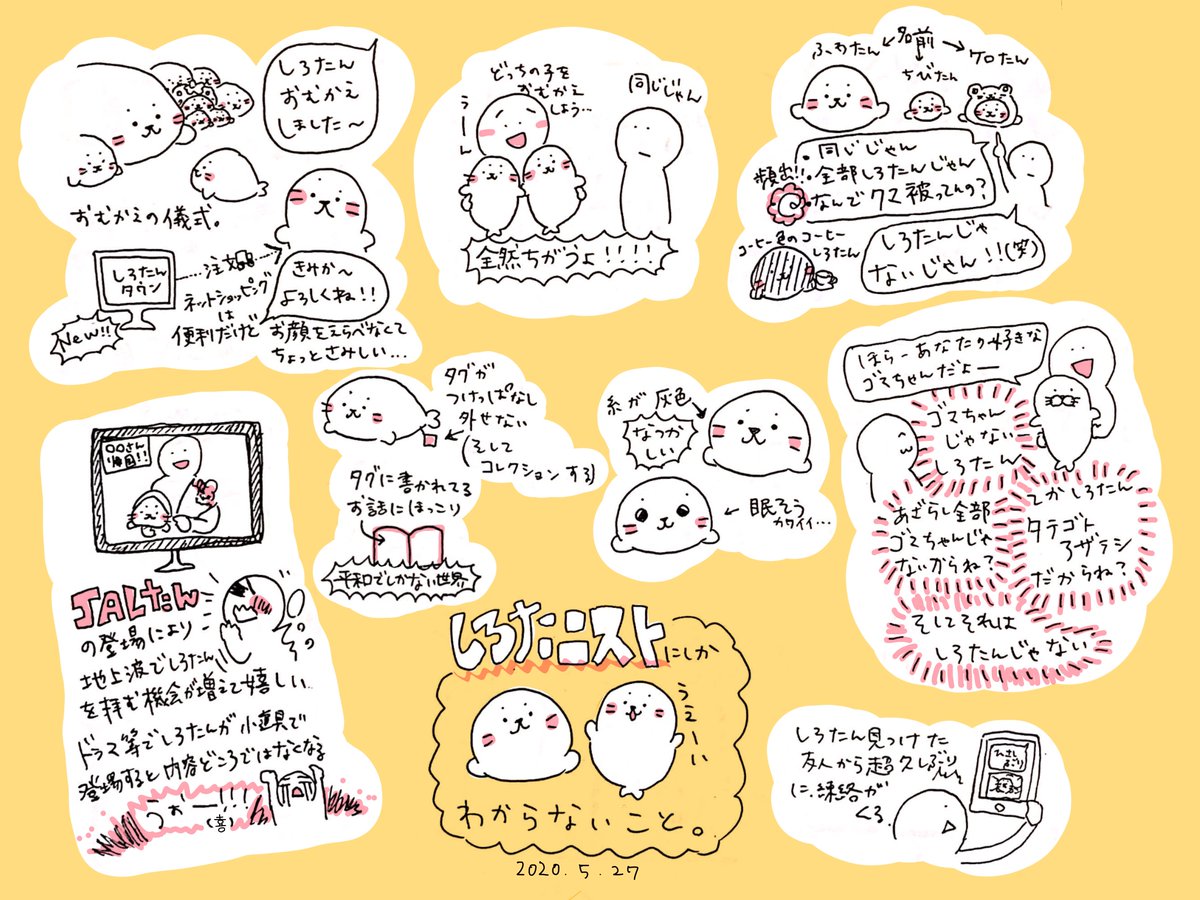 しろたん
おむかえ
しました〜
おむかえの儀式。
しろたん
タウン
New!!
注文
ネットショッピング
は
便利だけど
きみか〜
よろしくね!!
お顔をえらべなくて
ちょっとさみしい…
どっちの子を
おむかえ
しよう…
うーん
同じじゃん
全然ちがうよ!!!!
名前
ふわたん
ちびたん
ケロたん
頻出!!
・同じじゃん
・全部しろたんじゃん
・なんでクマ被ってんの?
コーヒー色のコーヒー
しろたん
しろたんじゃ
ないじゃん!!(笑)
タグが
つけっぱなし
外せない
(そして
コレクションする)
タグに書かれてる
お話にほっこり
平和でしかない世界
糸が灰色
なつか
しい
眠そう
カワイイ…
ほらーあなたの好きな
ゴマちゃんだよー
ゴマちゃん
じゃない
しろたん
あざらし全部
ゴマちゃんじゃ
ないからね?
てかしろたん
タテゴト
アザラシ
だからね?
そしてそれは
しろたんじゃない
〇〇さん
帰国!!
JALたん
の登場により
地上波でしろたん
を拝む機会が増えて嬉しい
ドラマ等でしろたんが小道具で
登場すると内容どころではなくなる
うぉー!!!
(喜)
しろたニストにしか
うえーい
わからないこと。
2020.5.27
しろたん見つけた
友人から超久しぶり
に連絡が
くる。
ひさし
ぶり